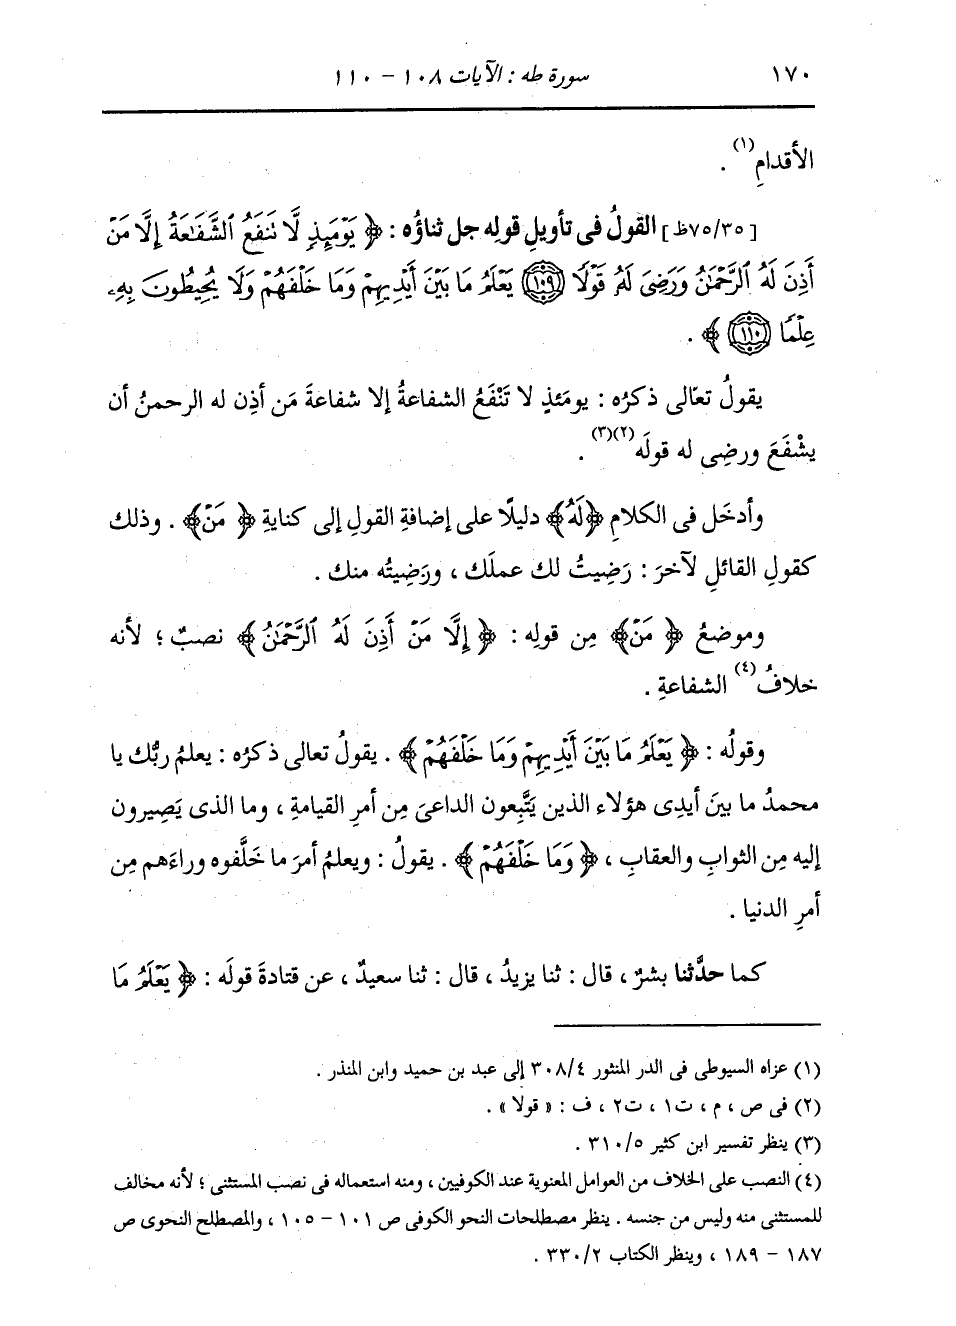 ١٧٠ سورة طه : الآيات ١٠٨ - ١١٠
الأقدامِ(١) .
[٧٥/٣٥ظ] القولُ فى تأويلِ قولِه جل ثناؤُه : ﴿ يَوْمَئِذٍ لَّا تَنفَعُ ٱلشَّفَٰعَةُ إِلَّا مَنْ
أَذِنَ لَهُ ٱلرَّحْمَٰنُ وَرَضِىَ لَهُۥ قَوْلًا ١٠٩ يَعْلَمُ مَا بَيْنَ أَيْدِيهِمْ وَمَا خَلْفَهُمْ وَلَا يُحِيطُونَ بِهِۦ
عِلْمًا ١١٠ ﴾ .
يقولُ تعالى ذكرُه : يومَئذٍ لا تَنْفَعُ الشفاعةُ إلا شفاعةَ مَن أذِن له الرحمنُ أن
يشْفَعَ ورضِى له قولَه(٢)(٣) .
وأدخَل فى الكلامِ ﴿لَهُ﴾ دليلًا على إضافةِ القولِ إلى كنايةِ ﴿ مَنْ﴾ . وذلك
كقولِ القائلِ لآخرَ : رَضِيتُ لك عملَك ، ورَضِيتُه منك .
وموضعُ ﴿ مَنْ﴾ مِن قولِه : ﴿ إِلَّا مَنْ أَذِنَ لَهُ ٱلرَّحْمَٰنُ﴾ نصبٌ ؛ لأنه
خلافُ(٤) الشفاعةِ .
وقولُه : ﴿ يَعْلَمُ مَا بَيْنَ أَيْدِيهِمْ وَمَا خَلْفَهُمْ ﴾ . يقولُ تعالى ذكرُه : يعلمُ ربُّك يا
محمدُ ما بينَ أيدِى هؤلاء الذين يَتَّبِعون الداعىَ مِن أمرِ القيامةِ ، وما الذى يَصِيرون
إليه مِن الثوابِ والعقابِ ، ﴿ وَمَا خَلْفَهُمْ ﴾ . يقولُ : ويعلمُ أمرَ ما خَلَّفوه وراءَهم مِن
أمرِ الدنيا .
كما حدَّثنا بشرٌ ، قال : ثنا يزيدُ ، قال : ثنا سعيدٌ ، عن قتادةَ قولَه : ﴿ يَعْلَمُ مَا
(١) عزاه السيوطى فى الدر المنثور ٣٠٨/٤ إلى عبد بن حميد وابن المنذر .
(٢) فى ص ، م ، ت١ ، ت٢ ، ف : « قولا » .
(٣) ينظر تفسير ابن كثير ٣١٠/٥ .
(٤) النصب على الخلاف من العوامل المعنوية عند الكوفيين ، ومنه استعماله فى نصب المستثنى ؛ لأنه مخالف
للمستثنى منه وليس من جنسه . ينظر مصطلحات النحو الكوفى ص ١٠١ - ١٠٥ ، والمصطلح النحوى ص
١٨٧ - ١٨٩ ، وينظر الكتاب ٣٣٠/٢ .